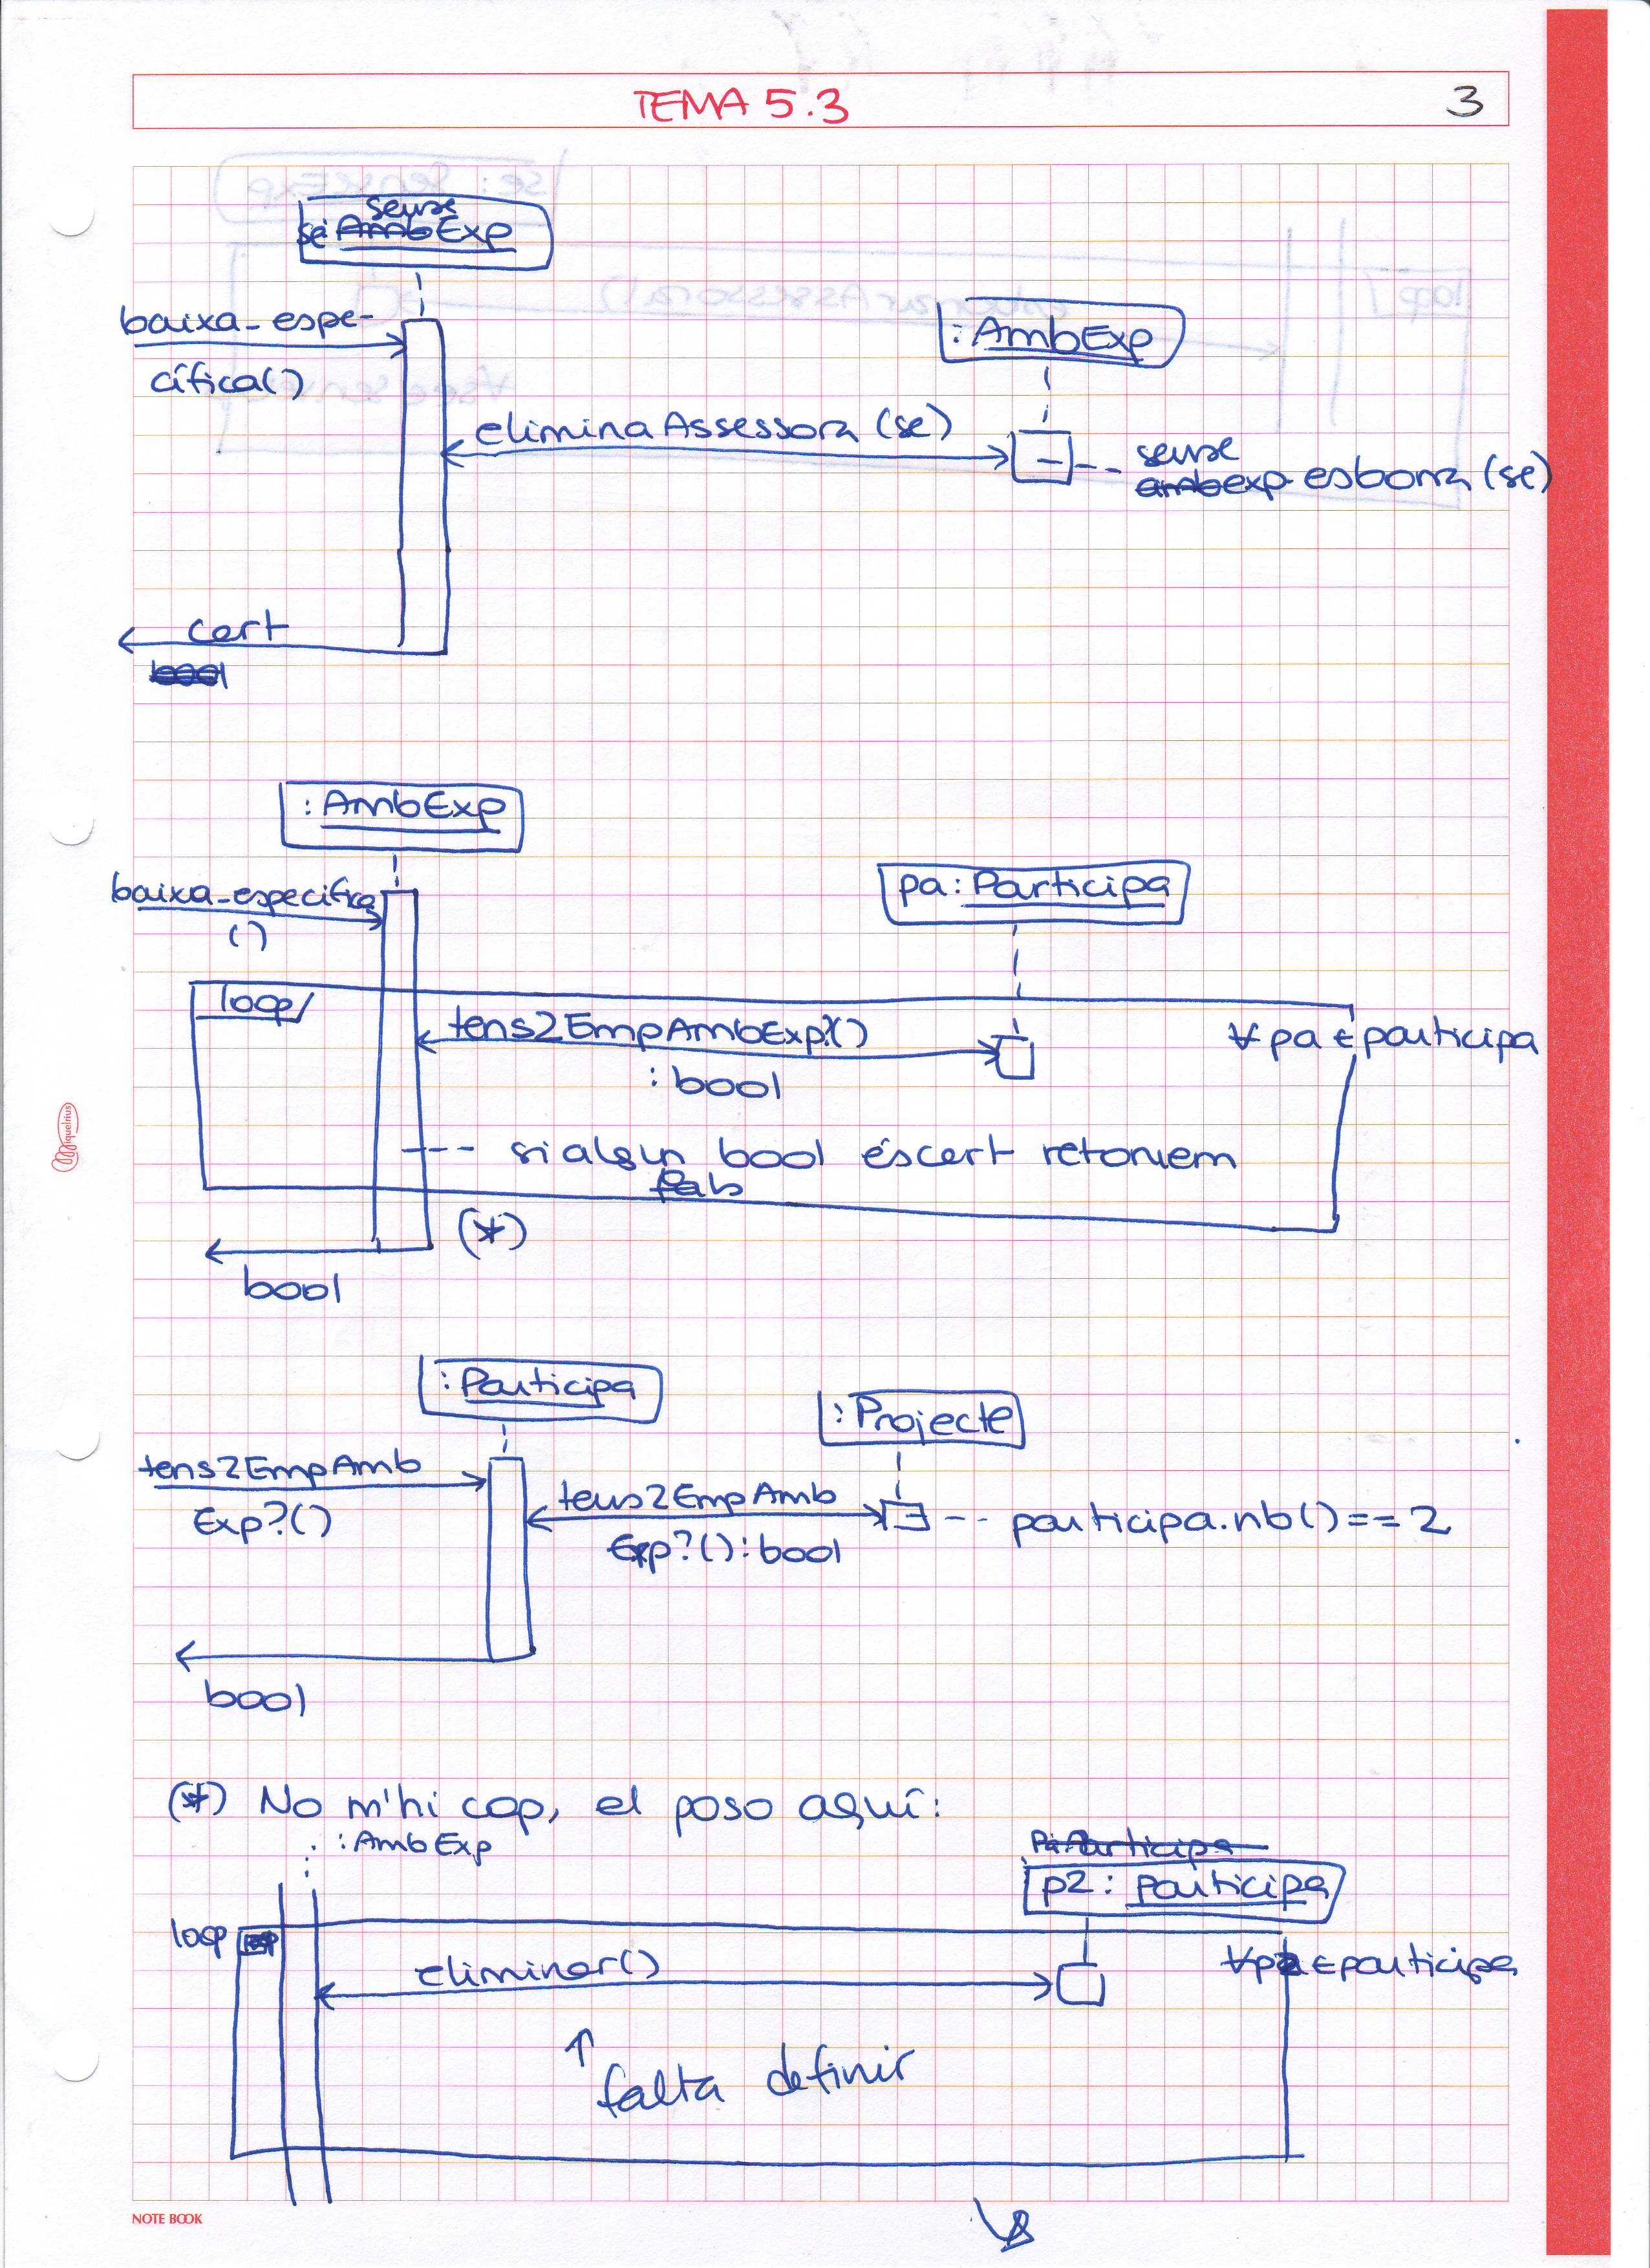 TEMA 5.3
3
sense
se: AmbExp
baixa-espe-
cífica()
: AmbExp
eliminaAssessora (se)
sense
ambexp esborra (se)
cert
bool
: AmbExp
baixa-especifica
()
pa: Participa
loop
tens2EmpAmbExp?()
: bool
∀ pa ∈ participa
si algun bool és cert retornem
fals
(*)
bool
: Participa
: Projecte
tens2EmpAmb
Exp?()
tens2EmpAmb
Exp?(): bool
participa.nb() == 2
bool
(*) No m'hi cap, el poso aquí:
: AmbExp
pa: Participa
p2: Participa
loop
eliminar()
∀p2 ∈ participa
↑
falta definir
Miquelrius
NOTE BOOK